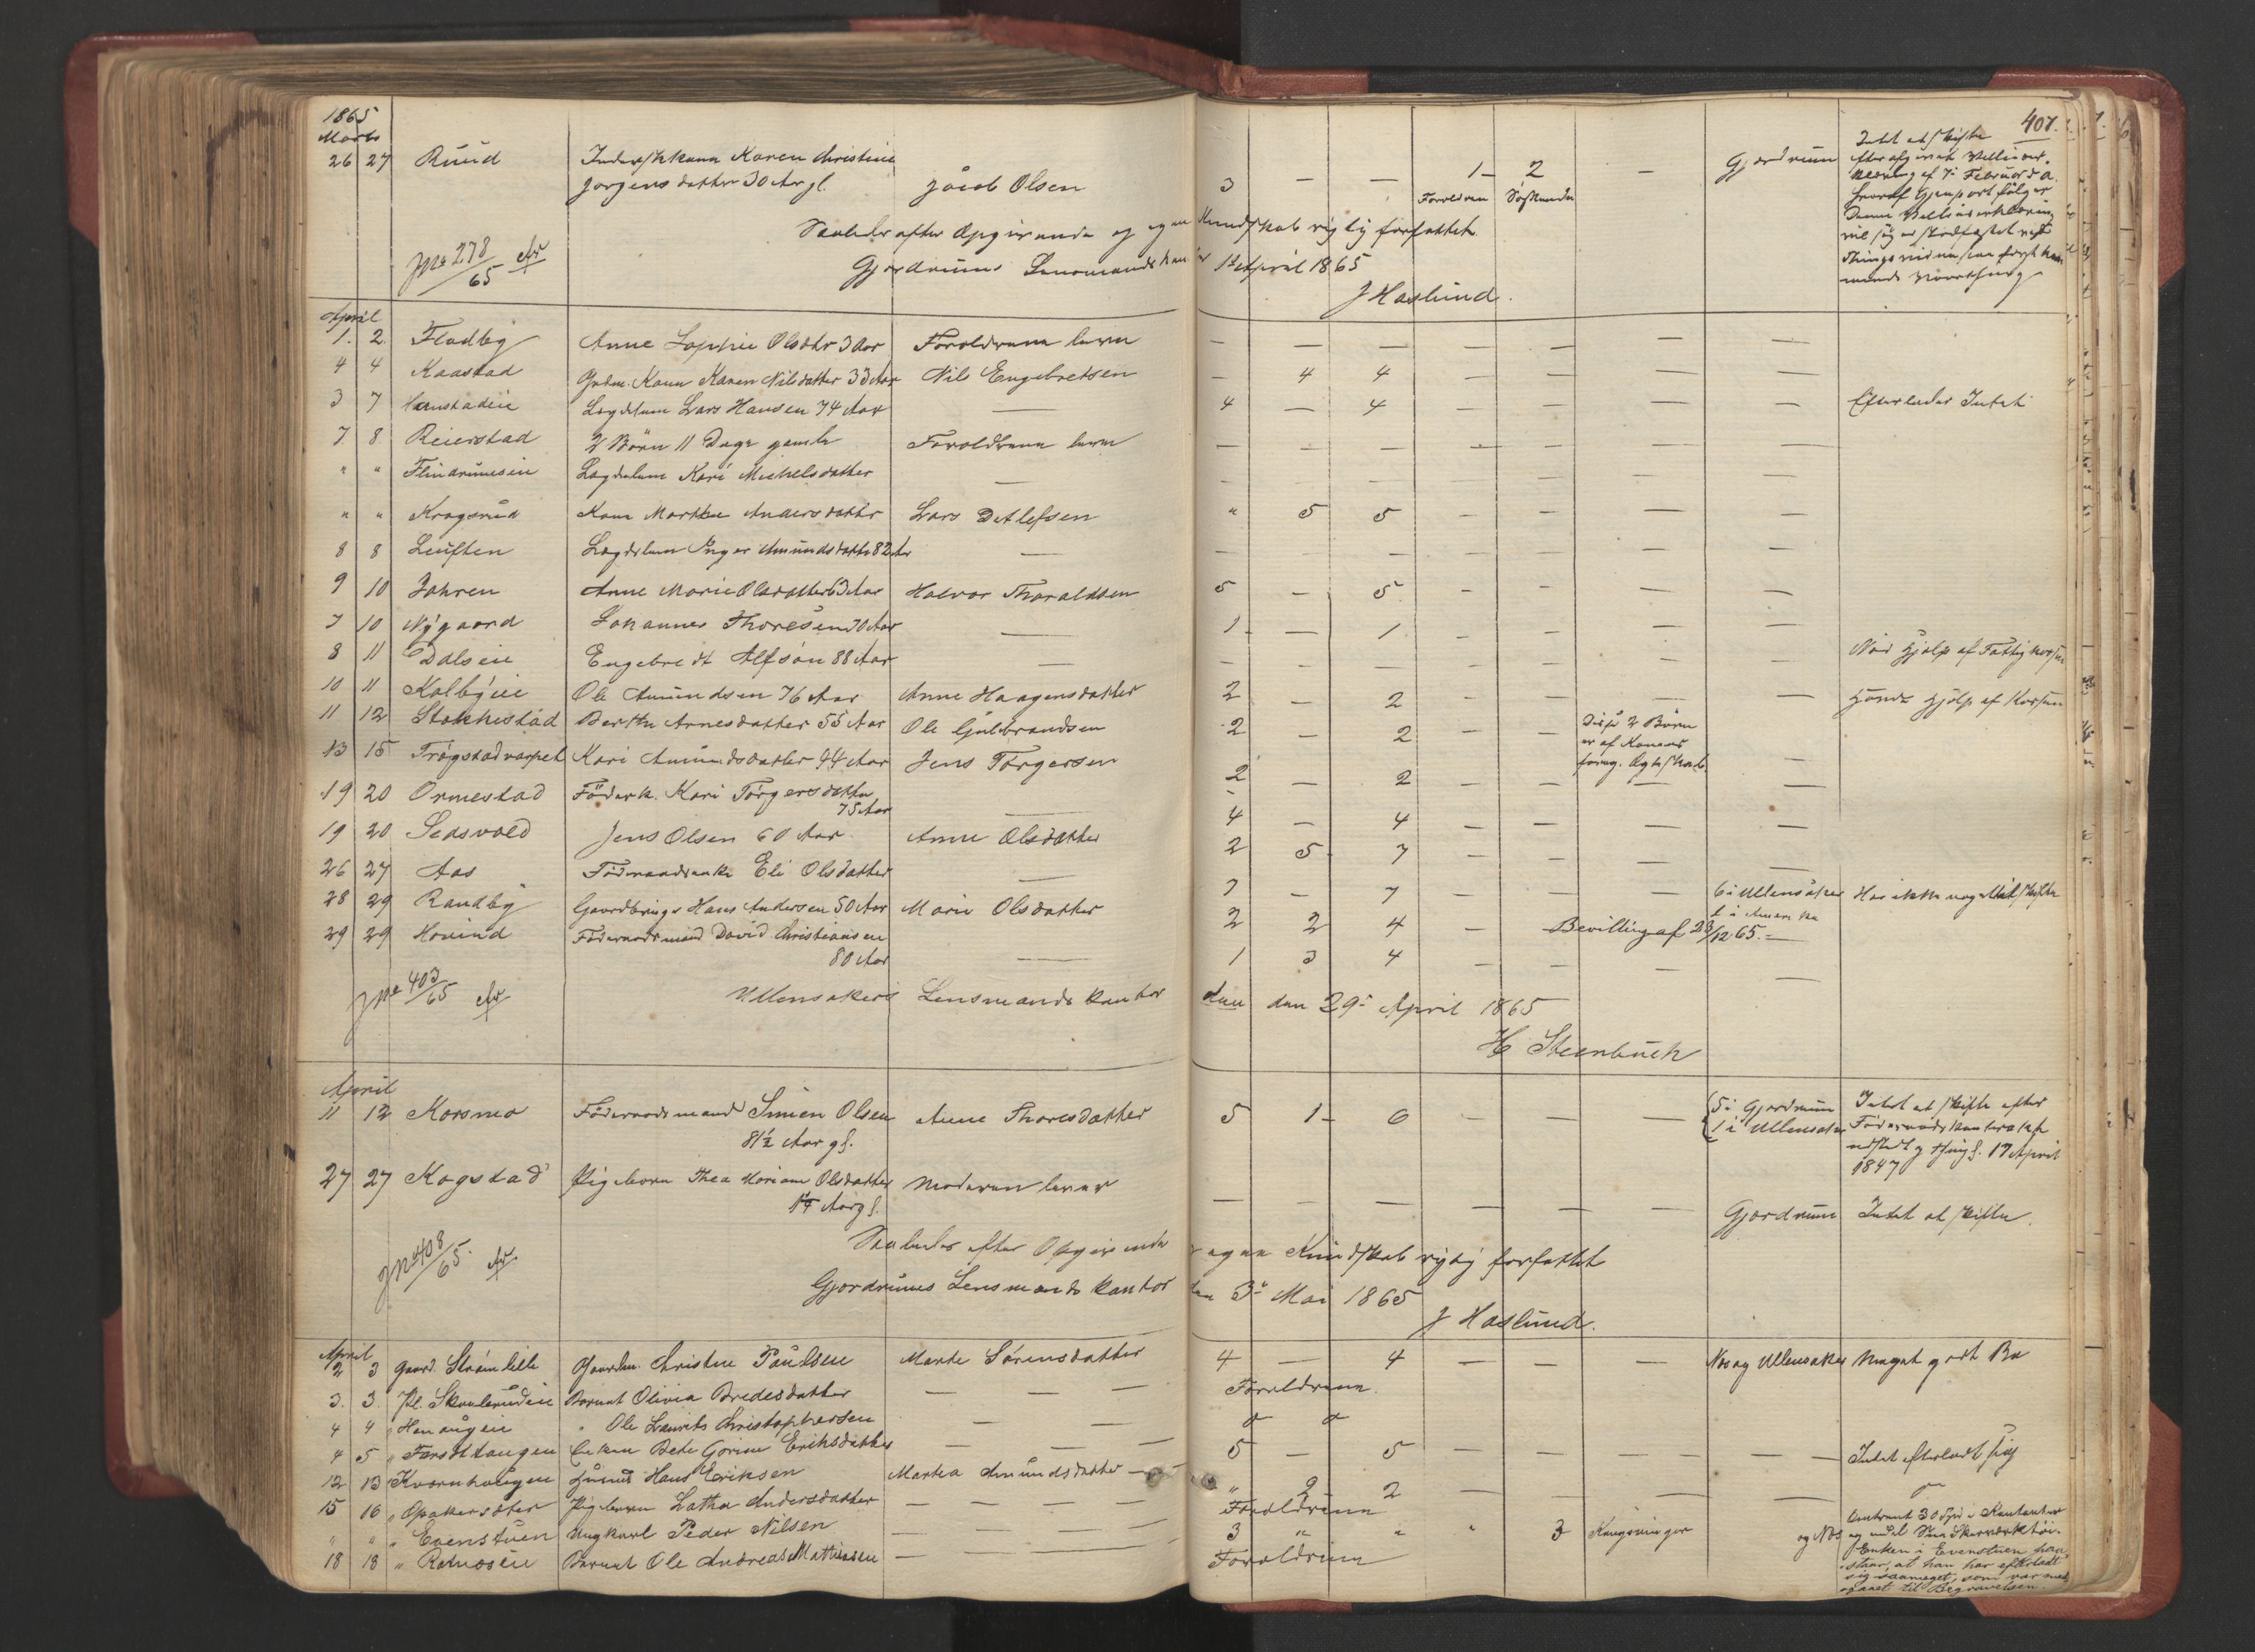 1865
Marts
407.
26 27 Ruud Inderstkone Karen Christine
Jørgensdatter 30 Aar gl. Jacob Olsen 3 — — 1 2 — Gjerdrum
Forældren Søskende
Intet at skifte
efter afgivet
af 7de Februar d. A.
Gjenpart følger
Saaledes efter Opgivende og egen Kundskab rigtig forfattet.
Gjerdrums Lensmandskontor 1ste April 1865
J Haslund.
JNo 278/65
April
1. 2. Fladby Anne Sophie Olsdtr 3 Aar Forældrene lever — — — — — — —
4 4 Kaastad Gdm. Kone Karen Nilsdatter 33 Aar Nils Engebretsen — 4 4 — — — —
3 7 Lægdslem Lars Hansen 74 Aar — 4 — 4 — — — — Efterlader Intet
7 8 Reierstad 2 Børn 11 Dage gamle Forældrene lever — — — — — — —
" " Lægdslem Kari Michelsdatter — — — — — — — —
" " Kragsrud Kone Marthe Andersdatter Lars Detlefsen " 5 5 — — — —
8 8 Leuften Lægdslem Inger Amundsdatter 82 Aar — — — — — — — —
9 10 Jahren Anne Marie Olsdatter 63 Aar Halvor Tharaldsen 5 — 5 — — — —
7 10 Nygaard Johannes Thoresen 70 Aar — 1 — 1 — — — —
8 11 Dalseie Engebredt Alfsøn 88 Aar — — — — — — — — Nød Hjælp af Fattigkassen
10 11 Kolbyeie Ole Amundsen 76 Aar Anne Haagensdatter 2 — 2 — — — — Hjælp af Kassen
11 12 Stokkestad Berthe Arnesdatter 55 Aar Ole Gulbrandsen 2 — 2 — — Disse 2 Børn
er af Konens
foreg. Ægteskab.
13 15 Trøgstadvarpet Kari Amundsdatter 44 Aar Jens Torgersen 2 — 2 — —
19 20 Ormestad Føderk. Kari Torgersdatter
75 Aar — 4 — 4 — — — —
19 20 Jens Olsen 60 Aar Anne Olsdatter 2 5 7 — — — —
26 27 Aas Føderaadsenke Eli Olsdatter — 7 — 7 — — — 6 i Ullensaker
1 i Amerika Har ikke noget at skifte
28 29 Randby Gaardbruger Hans Andersen 50 Aar Marie Olsdatter 2 2 4 — Bevilling af 23/12 65. —
29 29 Hovind Føderaadsmand David Christiansen
80 Aar — 1 3 4 — — — —
JNo 403/65
Ullensakers Lensmandskontor den 29de April 1865
H Steenbuch
April
11 12 Korsmo Føderaadsmand Simen Olsen Anne Thoresdatter 5 1 6 — — — 5 i Gjerdrum
1 i Ullensaker
81½ Aar gl.
Intet at skifte efter
Føderaadskontrakt
17 April
1847
27 27 Kogstad Pigebarn Thea Mariane Olsdatter Moderen lever — — — — — — Gjerdrum Intet at skifte.
1¼ Aar gl.
Saaledes efter Opgivende og egen Kundskab rigtig forfattet
JNo 408/65.
Gjerdrums Lensmandskontor den 3de Mai 1865
J Haslund.
April
2 3 Gaard. Strømlille Gaardm. Christen Paulsen Marte Sørensdatter 4 — 4 — — — Nes og Ullensaker Meget godt Bo
3. 3. Pl. Skoulerudeie Barnet Olivia Bredesdatter — — — Forældrene.
4 4 " Henaugeie " Ole Laurits Christophersen — — d d
4 5 " Farsdttangen Enken Bete Gorine Eriksdatter — — — 5 — 5 — — — — Intet efterladt sig
12 13 Kvernhaugen Husmd Hans Eriksen Martea Amundsdatter — " 2 2 — — — d
15 16 " Opakersæter Pigebarn Lathea Andersdatter — — — — Forældrene
" " " Evenstuen Ungkarl Peder Nilsen — — — 3 " " " 3 Kongsvinger og Nes
Omtrent 30 Spd i Kontanter
og endel Snedkerværktøi.
Enken i Evenstuen paa-
staar, at han har efterladt
sig saameget, som var med-
gaaet til Begravelsen.
18 18 " Ratnæseie Barnet Ole Andreas Mathiesen — — Forældrene